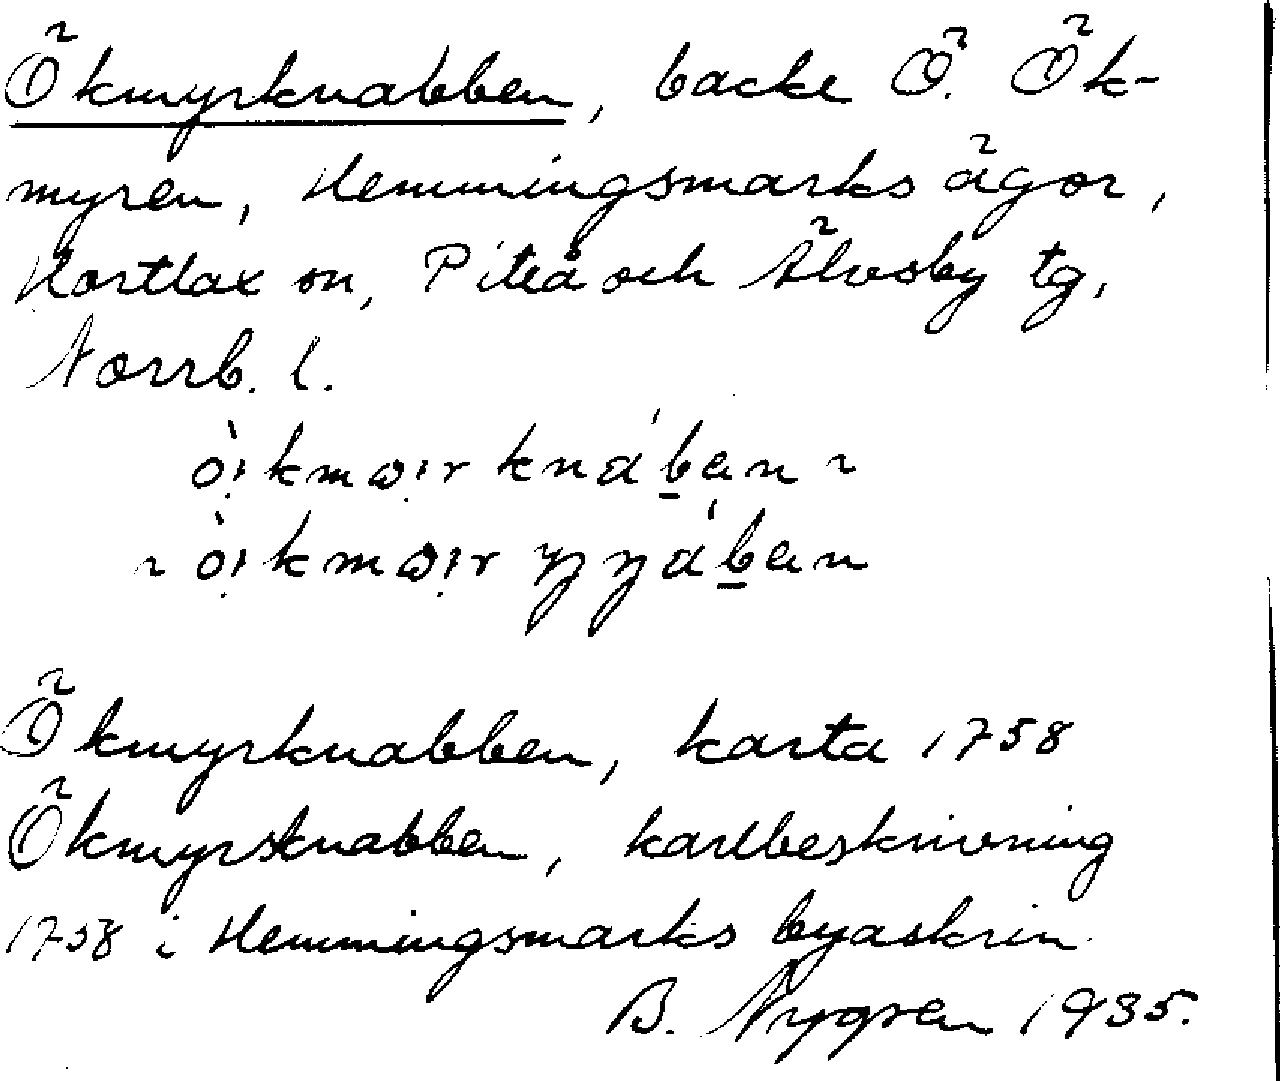 Ökmyrknabben, backe Ö. Ök-
myren, Hemmingsmarks ägor,
Hortlax sn, Piteå och Älvsby tg,
Norrb. l.
Ökmyrknabben, karta 1758
Ökmyrsknabben, kartbeskrivning
1758 i Hemmingsmarks byaskrin.
B. Nygren 1935.